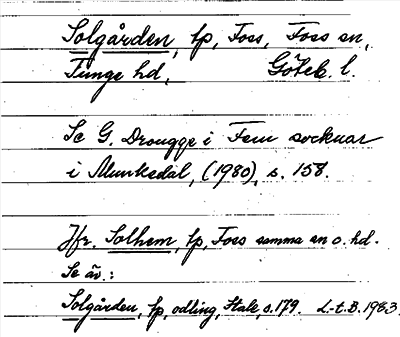 Solgården, lp, Foss, Foss sn,
Tunge hd, Göteb. l.
Se G. Drougge i Fem socknar
i Munkedal, (1980), s. 158.
Jfr. Solhem, lp, Foss samma sn o. hd.
Se äv.:
Solgården, lp, odling, Stale, s. 179. L-t. B. 1983.